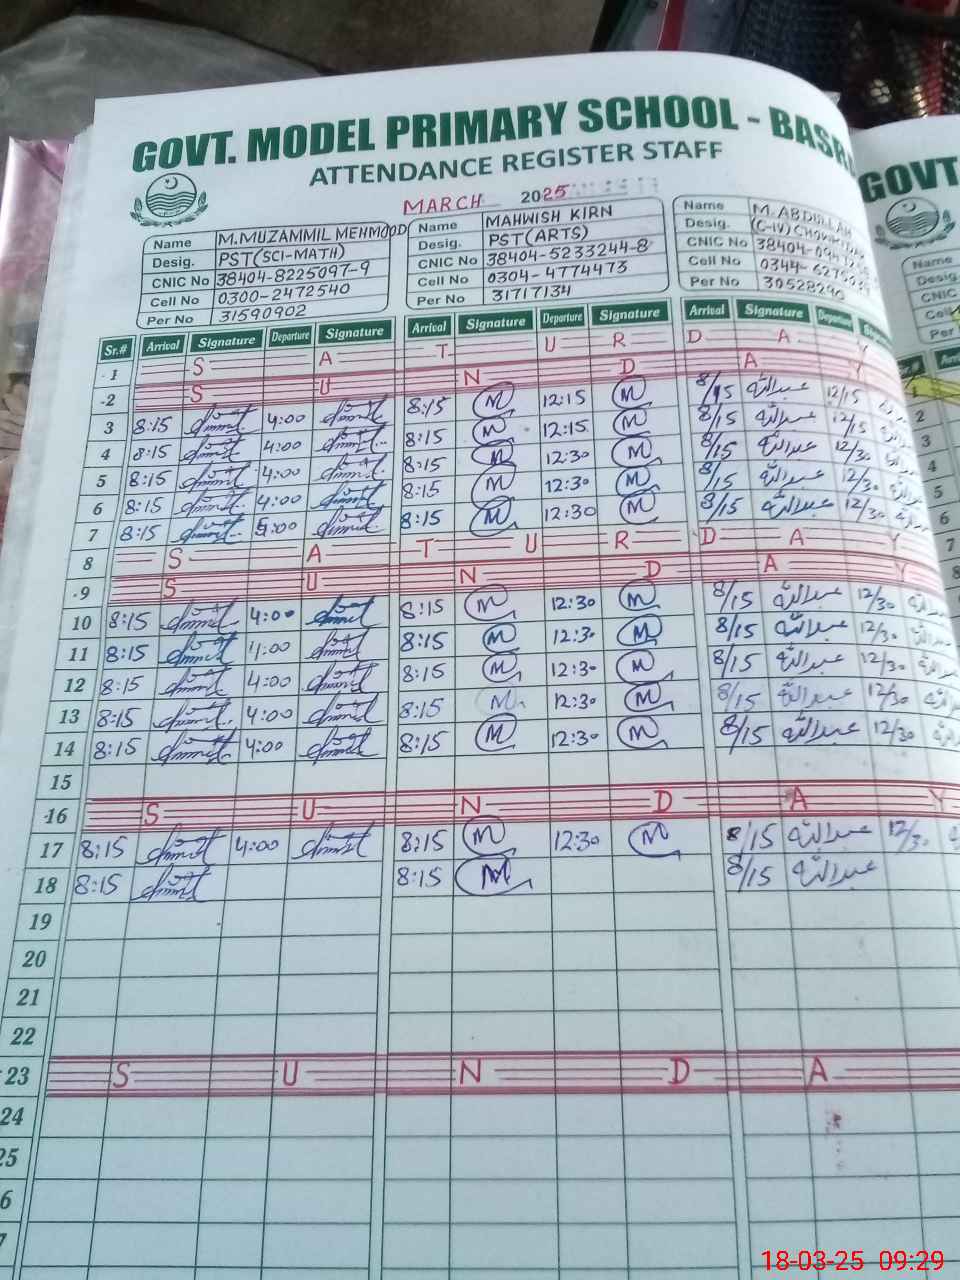 GOVT. MODEL PRIMARY SCHOOL - BASR
ATTENDANCE REGISTER STAFF
MARCH 2025
Name M.MUZAMMIL MEHMOOD
Desig. PST(SCI-MATH)
CNIC No 38404-8225097-9
Cell No 0300-2472540
Per No 31590902
Name MAHWISH KIRN
Desig. PST(ARTS)
CNIC No 38404-5233244-8
Cell No 0304-4774473
Per No 31717134
Name M.ABDULLAH
Desig. (C-IV)
CNIC No
Cell No
Per No
GOVT
Name
Desig.
CNIC
Cell
Per
Sr.# Arrival Signature Departure Signature Arrival Signature Departure Signature Arrival Signature Departure
1 S A T U R D A Y
2 S U N D A Y
3 8:15 4:00 8:15 M 12:15 M 8/15 عبداللہ 12/15
4 8:15 4:00 8:15 M 12:15 M 8/15 عبداللہ 12/15
5 8:15 4:00 8:15 M 12:30 M 8/15 عبداللہ 12/30
6 8:15 4:00 8:15 M 12:30 M 8/15 عبداللہ 12/30
7 8:15 8:15 M 12:30 M 8/15 عبداللہ 12/30
8 S A T U R D A Y
9 S U N D A Y
10 8:15 4:00 8:15 M 12:30 M 8/15 عبداللہ 12/30
11 8:15 4:00 8:15 M 12:30 M 8/15 عبداللہ 12/30
12 8:15 4:00 8:15 M 12:30 M 8/15 عبداللہ 12/30
13 8:15 4:00 8:15 M 12:30 M 8/15 عبداللہ 12/30
14 8:15 4:00 8:15 M 12:30 M 8/15 عبداللہ 12/30
15
16 S U N D A Y
17 8:15 4:00 8:15 M 12:30 M 8/15 عبداللہ 12/30
18 8:15 8:15 M 8/15 عبداللہ
19
20
21
22
23 S U N D A
24
25
6
7
18-03-25 09:29